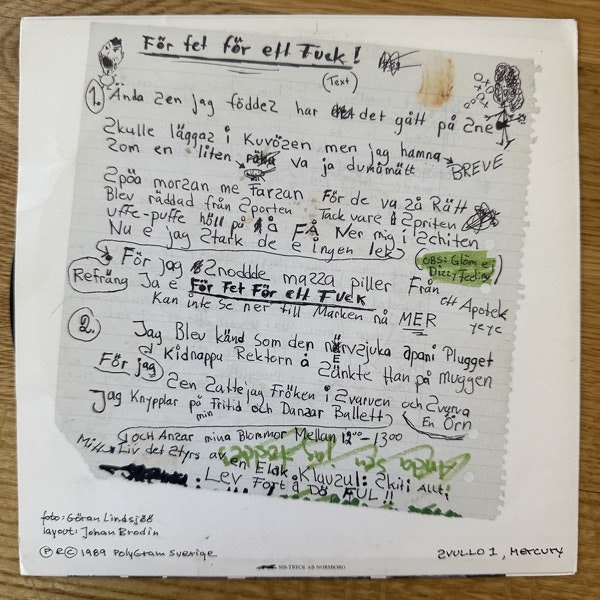 För fet för ett Fuck!
(Text)
1. Ända Sen jag föddes har det gått på Sne
Skulle läggas i Kuvösen men jag hamna BREVE
Som en liten va ja dumåmätt
Spöa morsan me Farsan För de va Så Rätt
Blev räddad från Sporten Tack vare Spriten
uffe-puffe höll på å FÅ Ner mig i Schiten
Nu e jag Stark de e ingen lek
OBS: Glöm ej
För jag Snodde massa piller Från ett Apotek
yeye
Refräng Ja e För Fet För ett Fuck
Kan inte Se ner till Marken nå MER
2. Jag Blev känd Som den nervsjuka apan i Plugget
För jag Kidnappa Rektorn å Sänkte Han på muggen
Sen Satte jag Fröken i Svarven och Svarva En Örn
Jag Knypplar på min Fritid och Danzar Ballett
och Anzar mina Blommor Mellan 12⁰⁰-13⁰⁰
Mitt Liv det Styrs av en Elak Klausul: Skit i Allt;
Lev Fort å Dö FUL!!
foto: Göran Lindsjöö
layout: Johan Brodin
Ⓟ & © 1989 PolyGram Sverige
SVULLO 1, Mercury
SIB-TRYCK AB NORSBORG